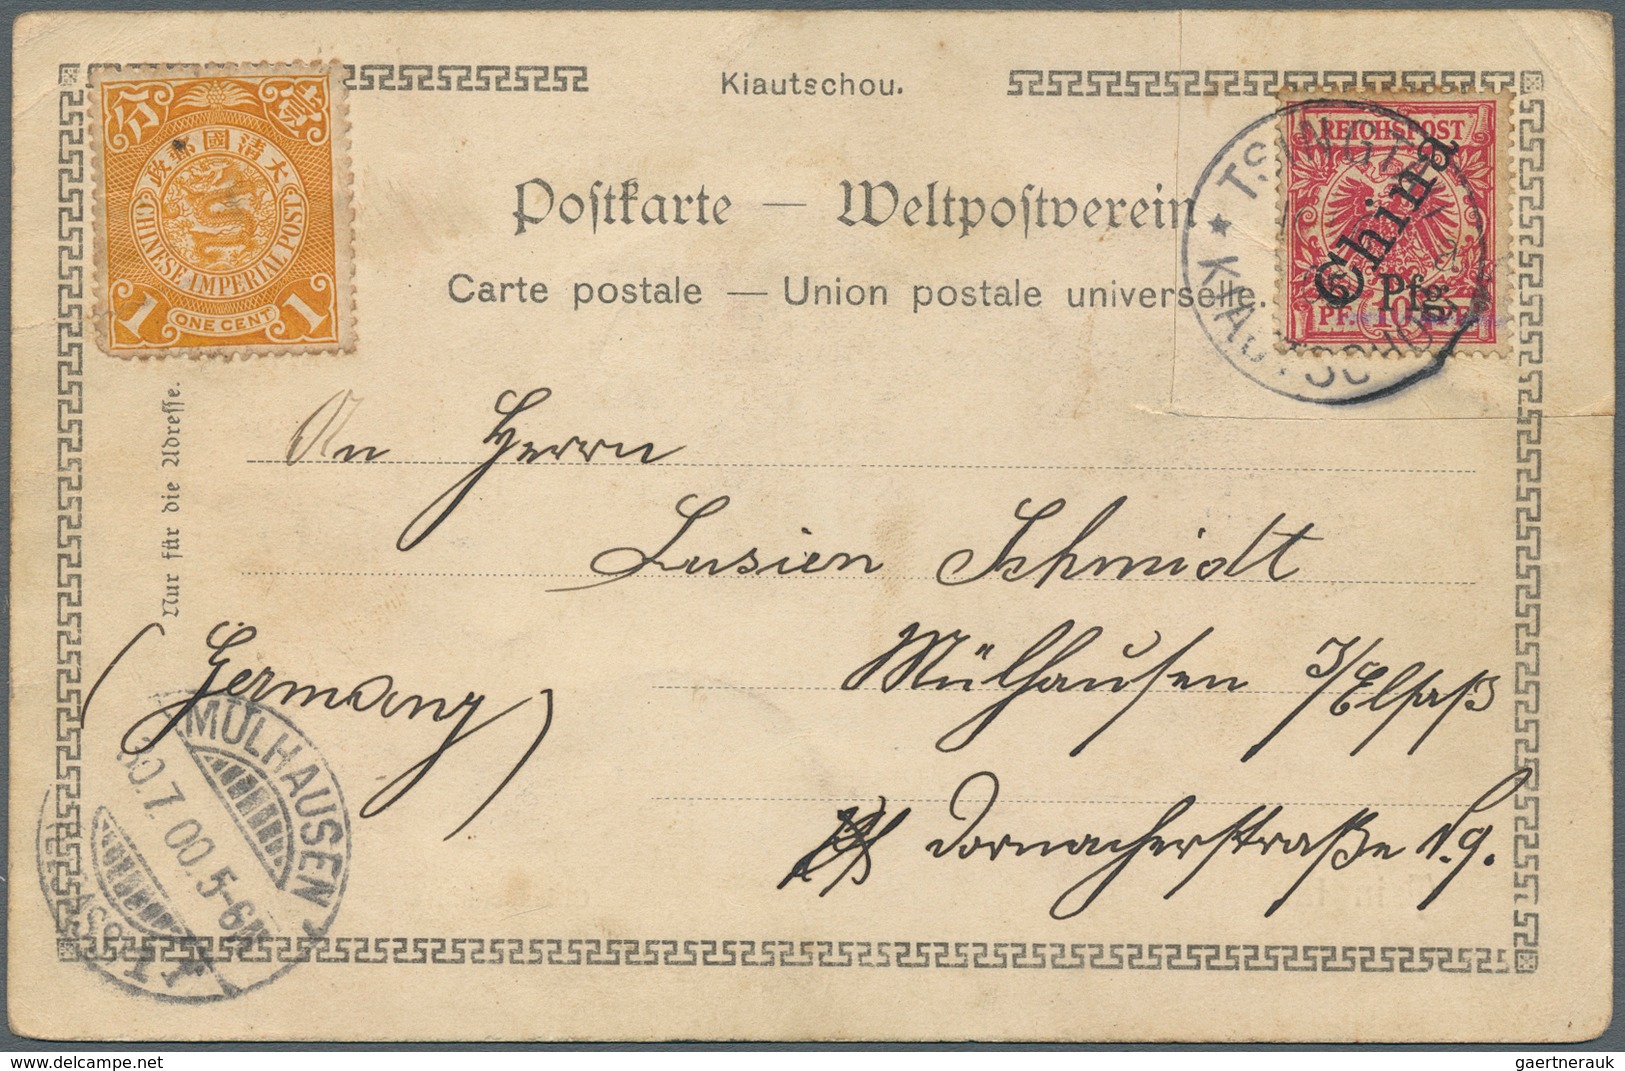 Kiautschou.
分 壹
大清國郵政
CHINESE IMPERIAL POST
1 ONE CENT 1
REICHSPOST
China
5 Pfg.
PF. 10 PF.
★ TSINGTAU
KIAUTSCHOU
Postkarte — Weltpostverein
Carte postale — Union postale universelle.
Nur für die Adresse.
An Herrn
Lusien Schmidt
Mülhausen I/Elsaß
Dornacherstraße N.9.
(Germany)
MÜLHAUSEN
.7.00.5-6N
delcampe.net
gaertnerauk